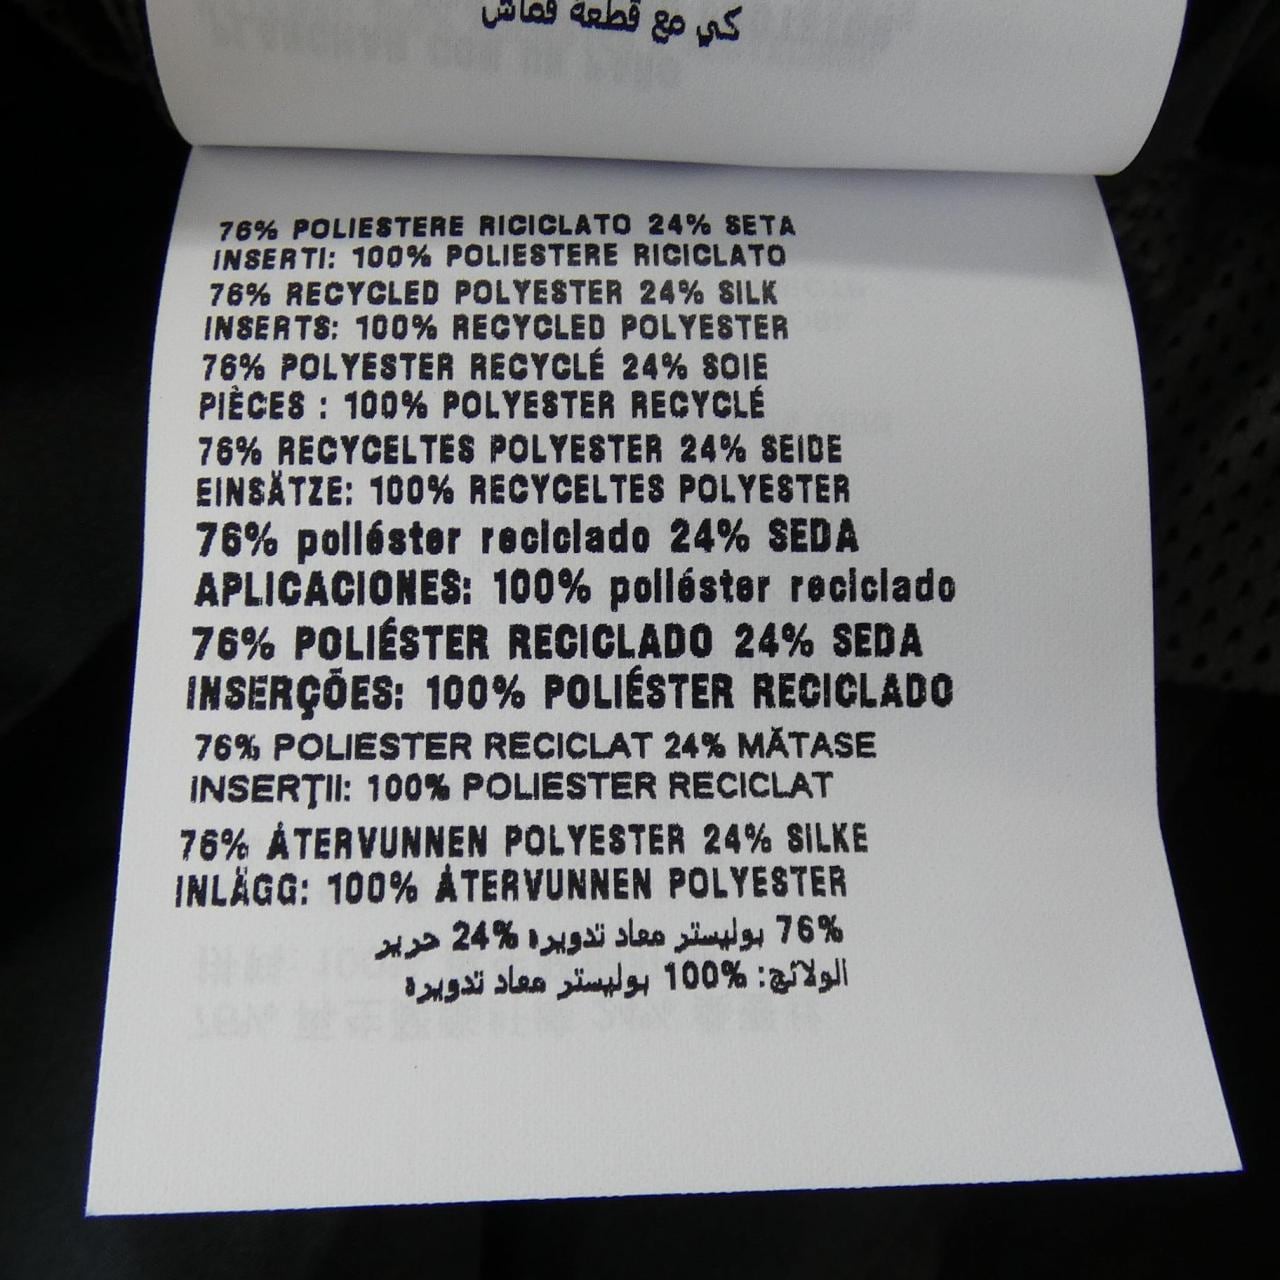 كي مع قطعة قماش
76% POLIESTERE RICICLATO 24% SETA
INSERTI: 100% POLIESTERE RICICLATO
76% RECYCLED POLYESTER 24% SILK
INSERTS: 100% RECYCLED POLYESTER
76% POLYESTER RECYCLÉ 24% SOIE
PIÈCES : 100% POLYESTER RECYCLÉ
76% RECYCELTES POLYESTER 24% SEIDE
EINSÄTZE: 100% RECYCELTES POLYESTER
76% poliéster reciclado 24% SEDA
APLICACIONES: 100% poliéster reciclado
76% POLIÉSTER RECICLADO 24% SEDA
INSERÇÕES: 100% POLIÉSTER RECICLADO
76% POLIESTER RECICLAT 24% MĂTASE
INSERŢII: 100% POLIESTER RECICLAT
76% ÅTERVUNNEN POLYESTER 24% SILKE
INLÄGG: 100% ÅTERVUNNEN POLYESTER
76% بوليستر معاد تدويره 24% حرير
الولائج: 100% بوليستر معاد تدويره